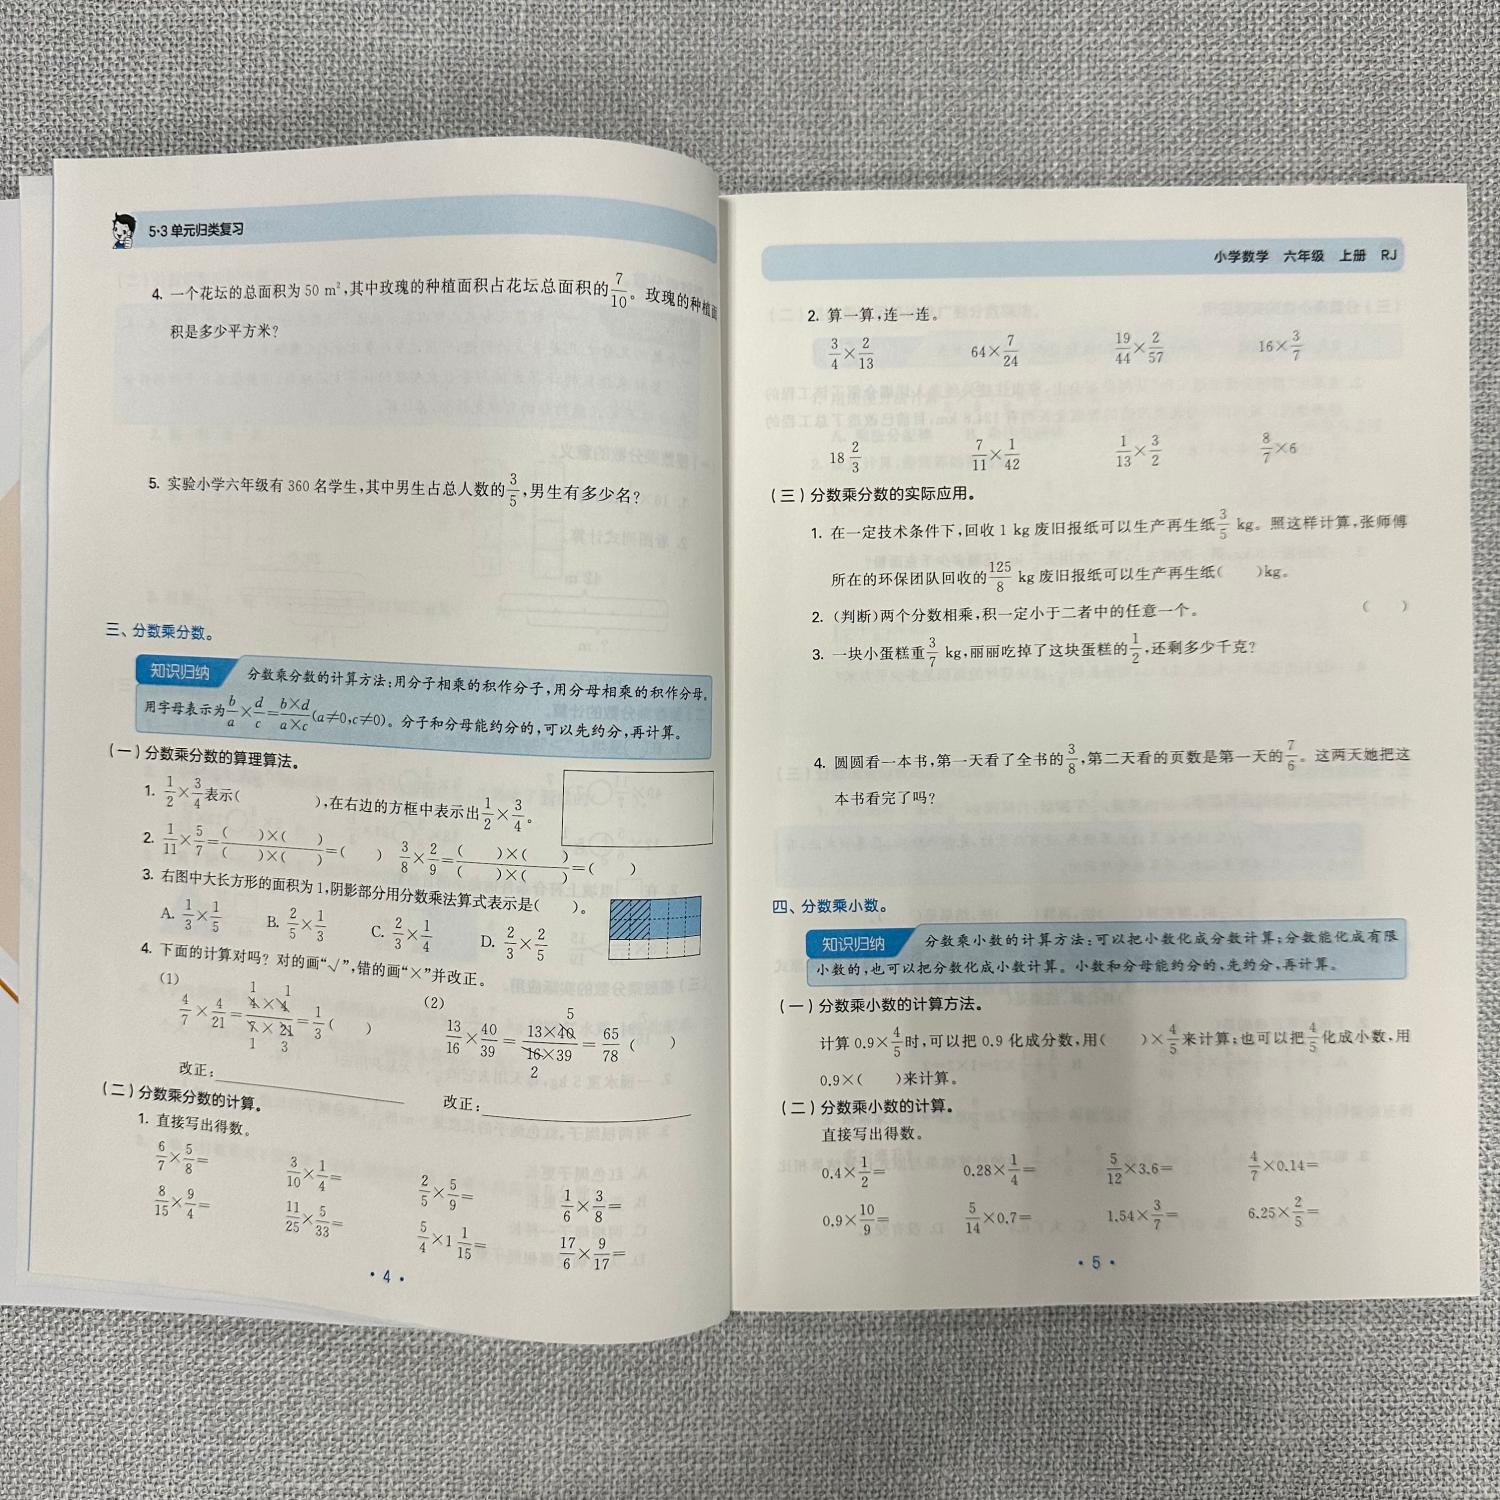 5·3 单元归类复习
4. 一个花坛的总面积为 50 m²,其中玫瑰的种植面积占花坛总面积的 7/10。玫瑰的种植面
积是多少平方米?
5. 实验小学六年级有 360 名学生,其中男生占总人数的 3/5,男生有多少名?
三、分数乘分数。
知识归纳 分数乘分数的计算方法:用分子相乘的积作分子,用分母相乘的积作分母。
用字母表示为 b/a×d/c=b×d/a×c(a≠0,c≠0)。分子和分母能约分的,可以先约分,再计算。
(一)分数乘分数的算理算法。
1. 1/2×3/4表示( ),在右边的方框中表示出 1/2×3/4。
2. 1/11×5/7=( )×( )/( )×( )=( ) 3/8×2/9=( )×( )/( )×( )=( )
3. 右图中大长方形的面积为1,阴影部分用分数乘法算式表示是( )。
A. 1/3×1/5 B. 2/5×1/3 C. 2/3×1/4 D. 2/3×2/5
4. 下面的计算对吗? 对的画“√”,错的画“×”并改正。
(1) (2)
1 1 5
4/7×4/21=4×4/7×21=1/3( ) 13/16×40/39=13×40/16×39=65/78( )
1 3 2
改正: 改正:
(二)分数乘分数的计算。
1. 直接写出得数。
6/7×5/8= 3/10×1/4= 2/5×5/9= 1/6×3/8=
8/15×9/4= 11/25×5/33= 5/4×1 1/15= 17/6×9/17=
· 4 ·
小学数学 六年级 上册 RJ
2. 算一算,连一连。
3/4×2/13 64×7/24 19/44×2/57 16×3/7
18 2/3 7/11×1/42 1/13×3/2 8/7×6
(三)分数乘分数的实际应用。
1. 在一定技术条件下,回收 1 kg 废旧报纸可以生产再生纸 3/5 kg。照这样计算,张师傅
所在的环保团队回收的 125/8 kg 废旧报纸可以生产再生纸( )kg。
2. (判断)两个分数相乘,积一定小于二者中的任意一个。 ( )
3. 一块小蛋糕重 3/7 kg,丽丽吃掉了这块蛋糕的 1/2,还剩多少千克?
4. 圆圆看一本书,第一天看了全书的 3/8,第二天看的页数是第一天的 7/6。这两天她把这
本书看完了吗?
四、分数乘小数。
知识归纳 分数乘小数的计算方法:可以把小数化成分数计算;分数能化成有限
小数的,也可以把分数化成小数计算。小数和分母能约分的,先约分,再计算。
(一)分数乘小数的计算方法。
计算 0.9×4/5时,可以把 0.9 化成分数,用( )×4/5来计算;也可以把 4/5 化成小数,用
0.9×( )来计算。
(二)分数乘小数的计算。
直接写出得数。
0.4×1/2= 0.28×1/4= 5/12×3.6= 4/7×0.14=
0.9×10/9= 5/14×0.7= 1.54×3/7= 6.25×2/5=
· 5 ·